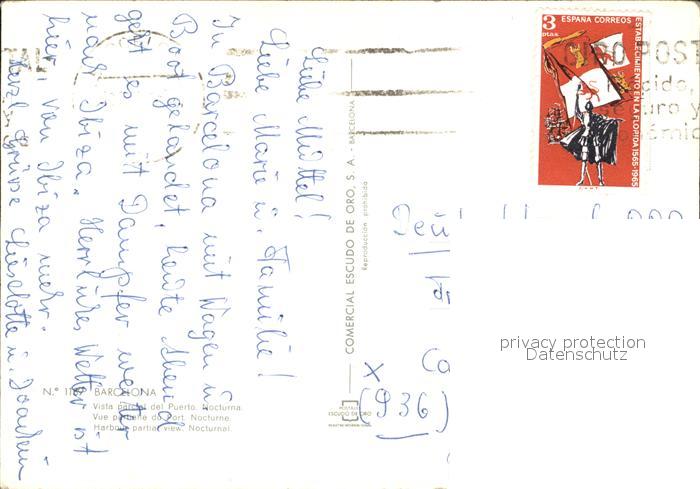 Liebe Muttel!
Liebe Marie u. Familie!
In Barcelona mit Wagen u.
Boot gelandet, heute Abend
geht es mit Dampfer weiter
nach Ibiza. Herrliches Wetter ist
hier, von Ibiza mehr.
Herzl. Grüsse Liselotte u. Joachim
N.º BARCELONA
Vista parcial del Puerto. Nocturna.
Vue partielle du Port. Nocturne.
Harbour partial view. Nocturnal.
COMERCIAL ESCUDO DE ORO, S. A. - BARCELONA
Reproducción prohibida
POSTALES
ESCUDO DE ORO
3 ptas
ESPAÑA CORREOS
ESTABLECIMIENTO EN LA FLORIDA 1565-1965
F.N.M.T.
GIRO POST
x
(936)
Ca
privacy protection
Datenschutz